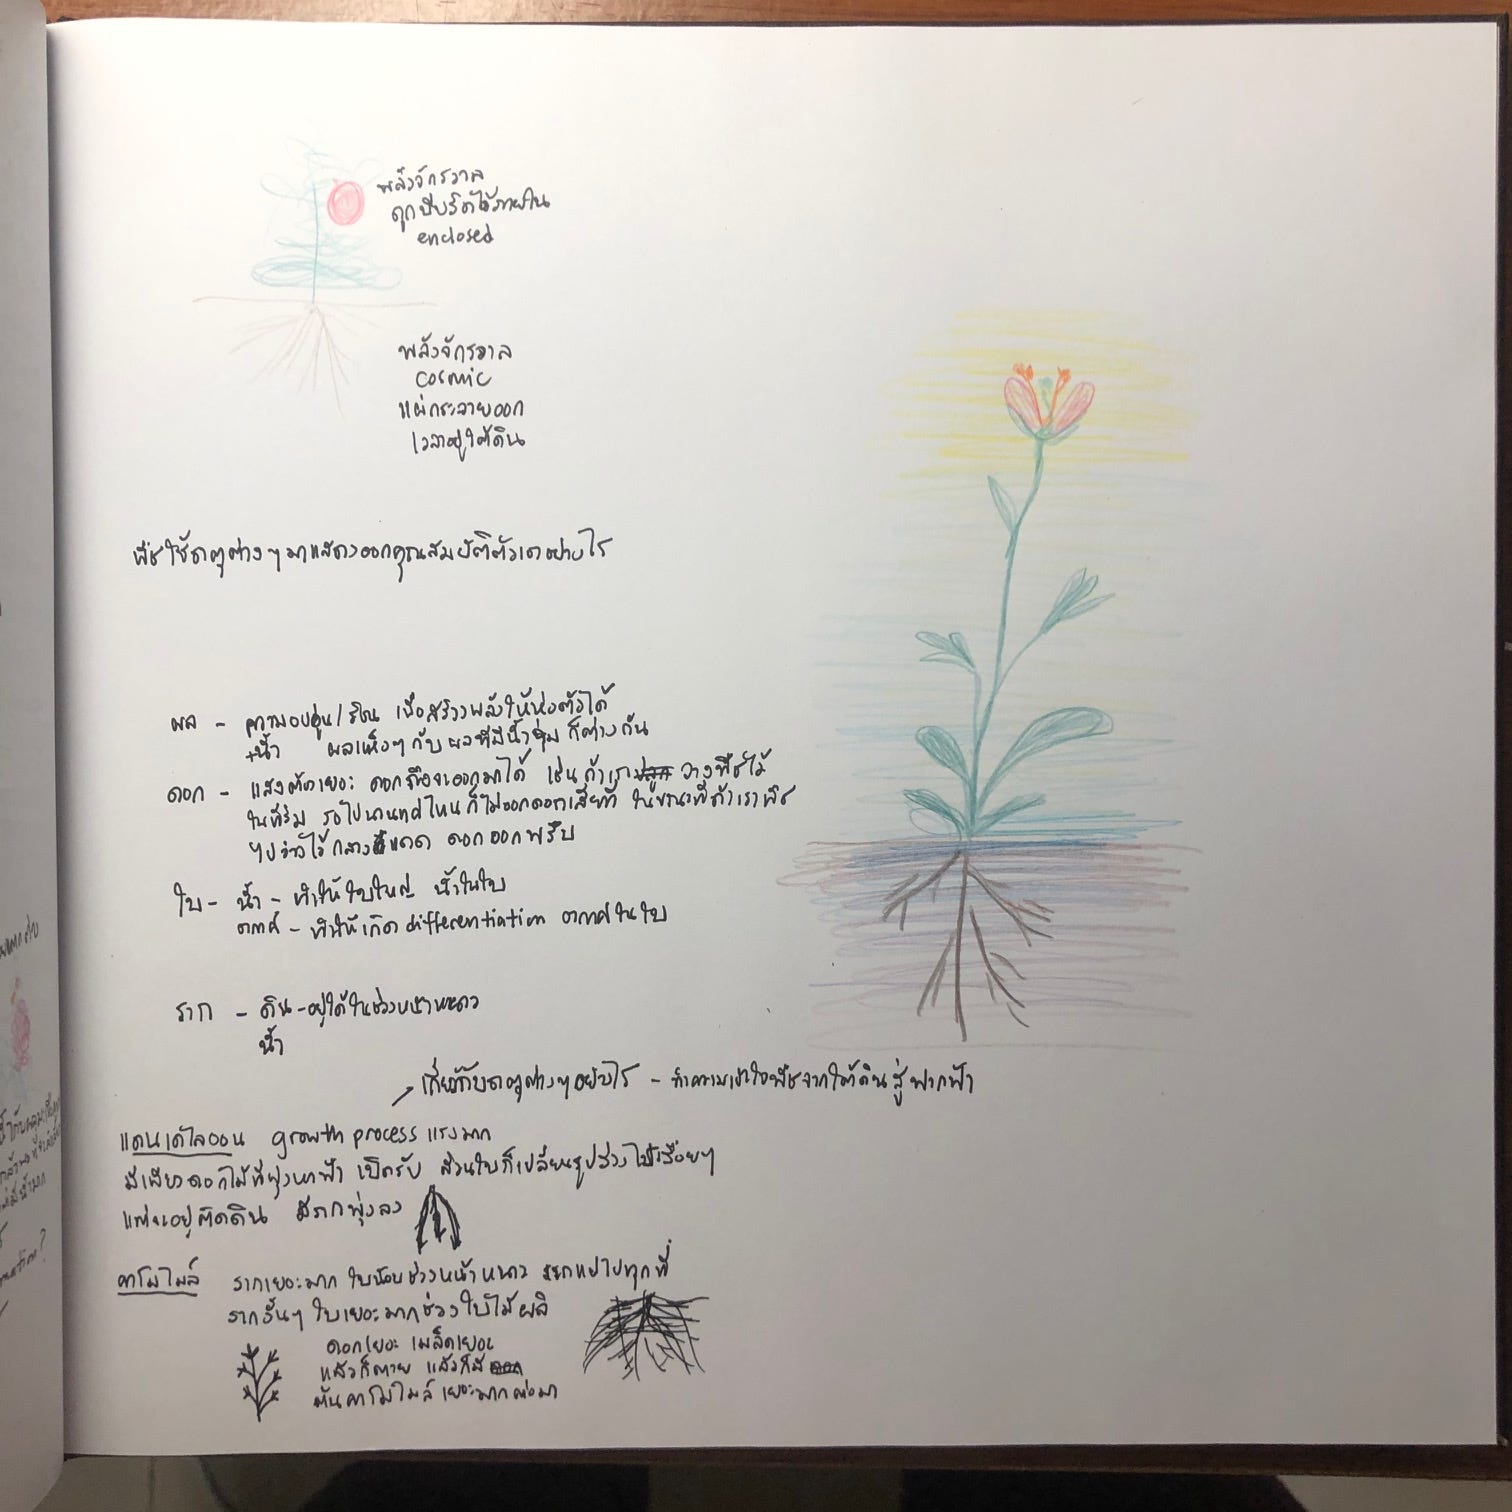 พลังจักรวาล
ถูกบีบรัดไว้ภายใน
enclosed
พลังจักรวาล
cosmic
แผ่กระจายออก
เวลาอยู่ใต้ดิน
พืชใช้ธาตุต่างๆมาแสดงออกคุณสมบัติตัวเองอย่างไร
ผล - ความอบอุ่น/ร้อน เพื่อสร้างพลังให้ห่อตัวได้
+น้ำ ผลแห้งๆ กับ ผลที่มีน้ำชุ่ม ก็ต่างกัน
ดอก - แสงต้องเยอะ ดอกถึงจะออกมาได้ เช่น ถ้าเราปลูก วางพืชไว้
ในที่ร่ม รอไปนานแค่ไหนก็ไม่ออกดอกเสียที ในขณะที่ถ้าเอาพืช
ไปวางไว้กลางแดด ดอกออกพรึบ
ใบ - น้ำ - ทำให้ใบใหญ่ น้ำในใบ
อากาศ - ทำให้เกิด differentiation อากาศในใบ
ราก - ดิน - อยู่ได้ในช่วงหน้าหนาว
น้ำ
เกี่ยวกับธาตุต่างๆอย่างไร - ทำความเข้าใจพืชจากใต้ดินสู่ฟากฟ้า
แดนดิไลออน growth process แรงมาก
มีเพียงดอกไม้ที่พุ่งหาฟ้า เปิดรับ ส่วนใบก็เปลี่ยนรูปร่างไปเรื่อยๆ
แต่จะอยู่ติดดิน มีรากพุ่งลง
คาโมไมล์ รากเยอะมาก ใบน้อยช่วงหน้าหนาว รากแผ่ไปทุกที่
รากสั้นๆ ใบเยอะมากช่วงใบไม้ผลิ
ดอกเยอะ เมล็ดเยอะ
แล้วก็ตาย แล้วก็มี
ต้นคาโมไมล์เยอะมากต่อมา